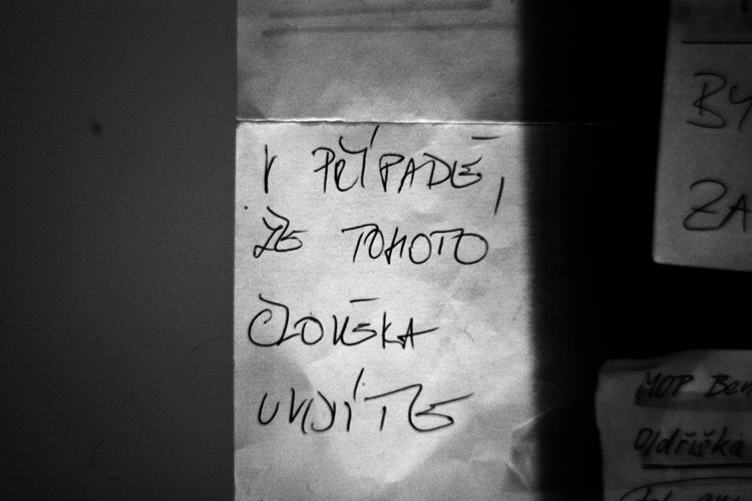 V PŘÍPADĚ,
ŽE TOHOTO
ČLOVĚKA
UVIDÍTE
BY
ZA
MOP Ben
Oldřiška